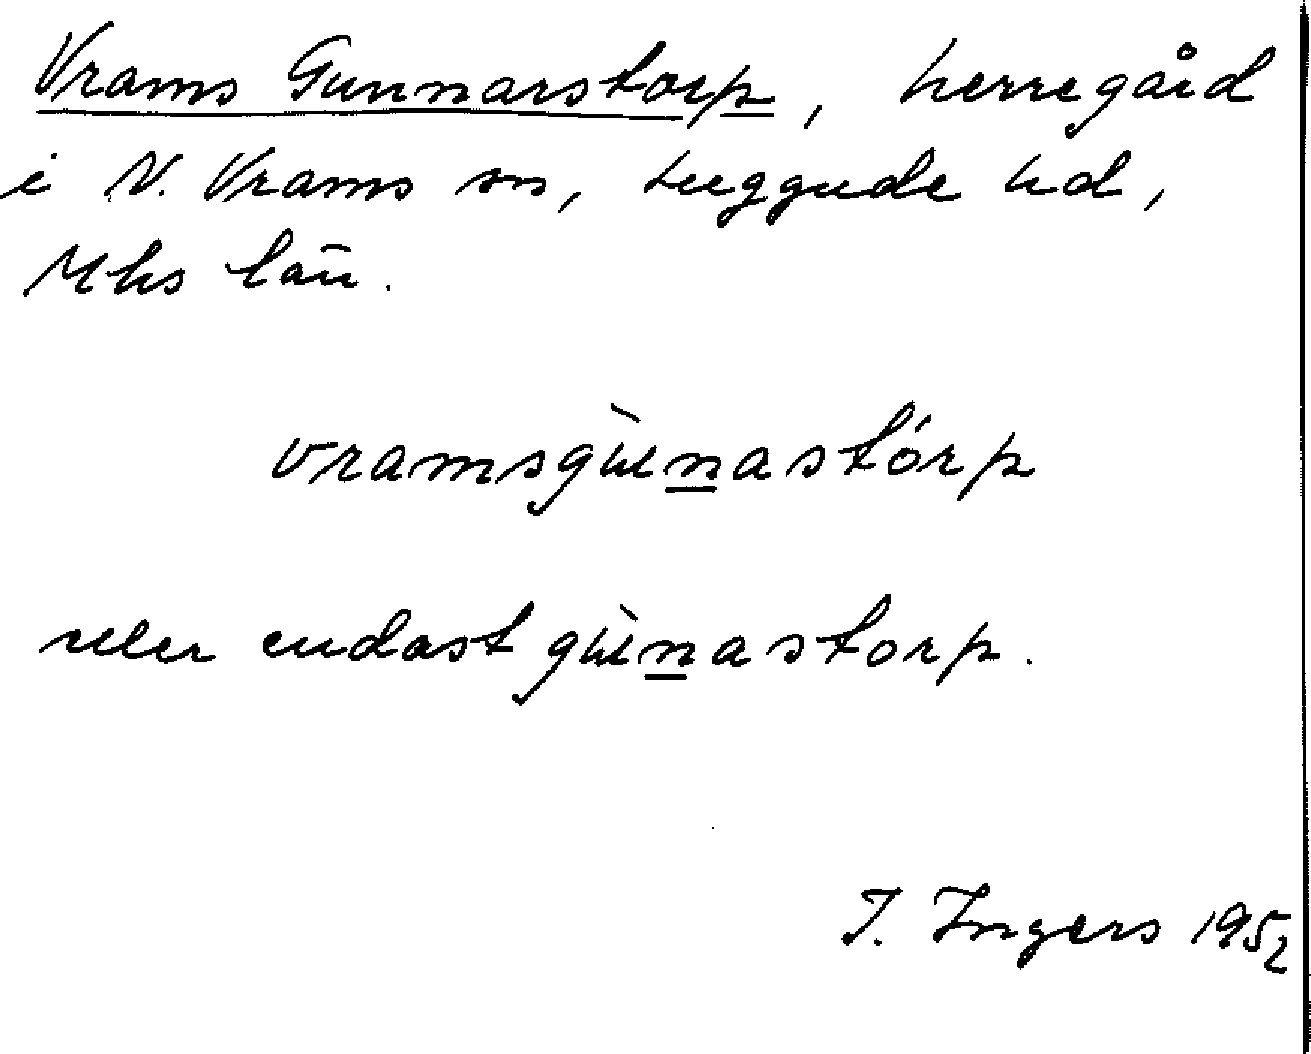 Vrams Gunnarstorp, herregård
i N. Vrams sn, Luggude hd,
Mhs län.
vramsgùnastórp
eller endast gùnastorp.
I. Ingers 1952